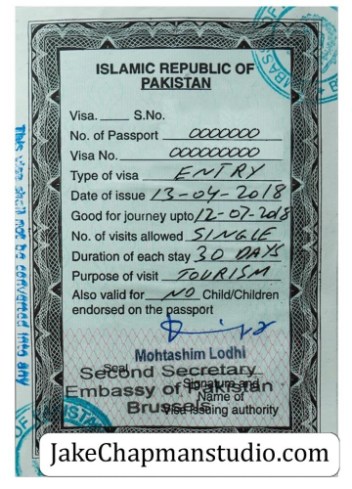 ISLAMIC REPUBLIC OF
PAKISTAN
Visa. S.No.
No. of Passport 0000000
Visa No. 000000000
Type of visa ENTRY
Date of issue 13-04-2018
Good for journey upto 12-07-2018
No. of visits allowed SINGLE
Duration of each stay 30 DAYS
Purpose of visit TOURISM
Also valid for NO Child/Children
endorsed on the passport
Mohtashim Lodhi
Seal
Second Secretary
Signature and
Embassy of Pakistan
Name of
Brussels
Visa issuing authority
This visa shall not be converted into any
JakeChapmanstudio.com